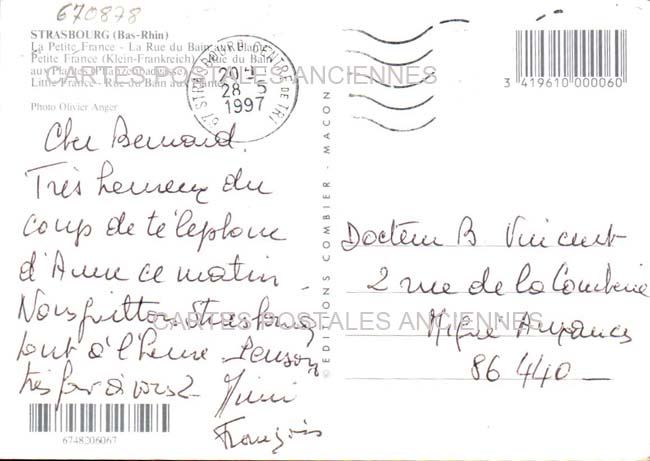 670878
STRASBOURG (Bas-Rhin)
La Petite France - La Rue du Bain aux Plantes
Petite France (Klein-Frankreich) - Rue du Bain
aux Plantes (Pflanzenbadstrasse)
Little France - Rue du Bain aux Plantes
Photo Olivier Anger
67 STRASBOURG CENTRE DE TRI
20 H
28-5
1997
3 419610 000060
CARTES POSTALES ANCIENNES
Cher Bernard.
Très heureux du
coup de téléphone
d'Anne ce matin.
Nous quittons Strasbourg
tout à l'heure Pensons
très fort à vous 2
Mimi
François
6748206067
© EDITIONS COMBIER - MACON
Docteur B Vincent
2 rue de la Comberie
Migné Auxances
86 440
CARTES POSTALES ANCIENNES